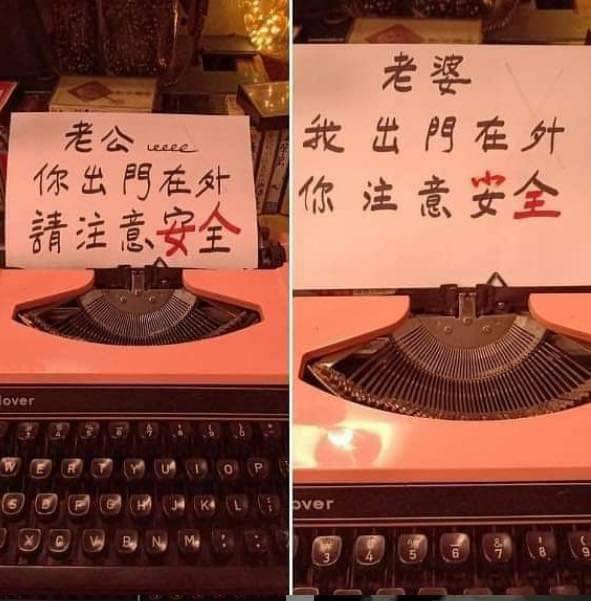 老公 eeee
你出門在外
請注意安全
lover
W E R T Y U I O P
S D F G H J K L
X C V B N M
老婆
我出門在外
你注意安全
over
3 4 5 6 & 7 8 9